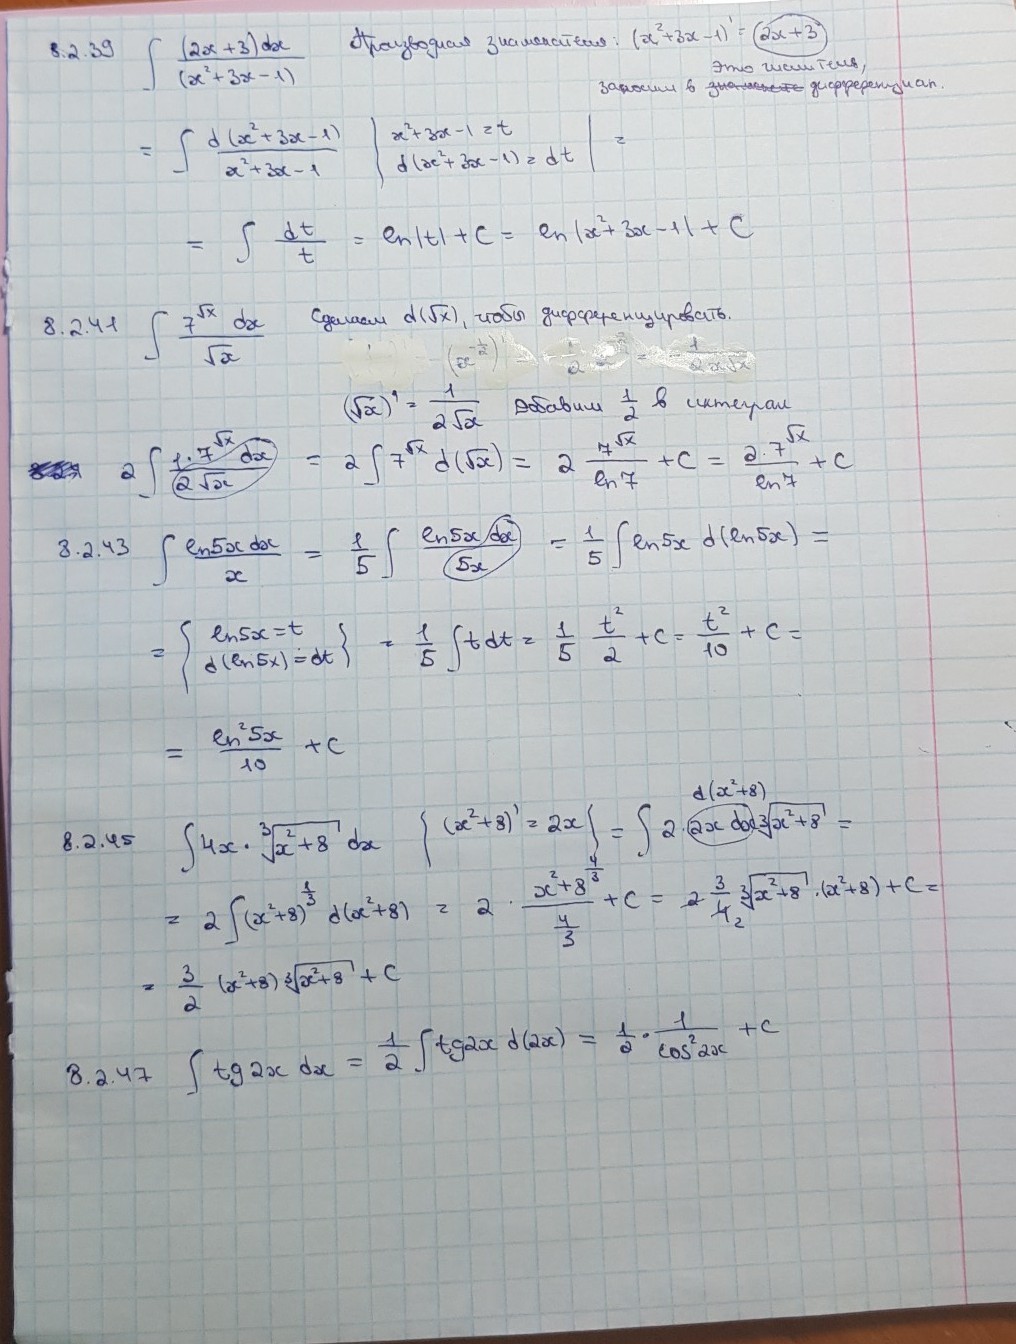 8.2.39 ∫ (2x+3)dx / (x²+3x-1) Производная знаменателя: (x²+3x-1)' = 2x+3
Это числитель,
заносим в дифференциал.
= ∫ d(x²+3x-1) / x²+3x-1 | x²+3x-1=t
d(x²+3x-1)=dt | =
= ∫ dt/t = ln|t|+C = ln|x²+3x-1|+C
8.2.41 ∫ 7^√x dx / √x Сделаем d(√x), чтобы дифференцировать.
(√x)' = 1/2√x Добавим 1/2 в интеграл
2∫ 1·7^√x dx / 2√x = 2∫7^√x d(√x) = 2 7^√x / ln7 + C = 2·7^√x / ln7 + C
8.2.43 ∫ ln5x dx / x = 1/5 ∫ ln5x dx / 5x = 1/5 ∫ ln5x d(ln5x) =
= { ln5x=t
d(ln5x)=dt } = 1/5 ∫tdt = 1/5 t²/2 + C = t²/10 + C =
= ln²5x / 10 + C
d(x²+8)
8.2.45 ∫4x·∛(x²+8) dx { (x²+8)'=2x } = ∫2·2x dx ∛(x²+8) =
= 2∫(x²+8)^1/3 d(x²+8) = 2· x²+8^4/3 / 4/3 + C = 2 3/4 2 ∛(x²+8)·(x²+8)+C =
= 3/2 (x²+8)∛(x²+8) + C
8.2.47 ∫tg2x dx = 1/2 ∫tg2x d(2x) = 1/2 · 1/cos²2x + C